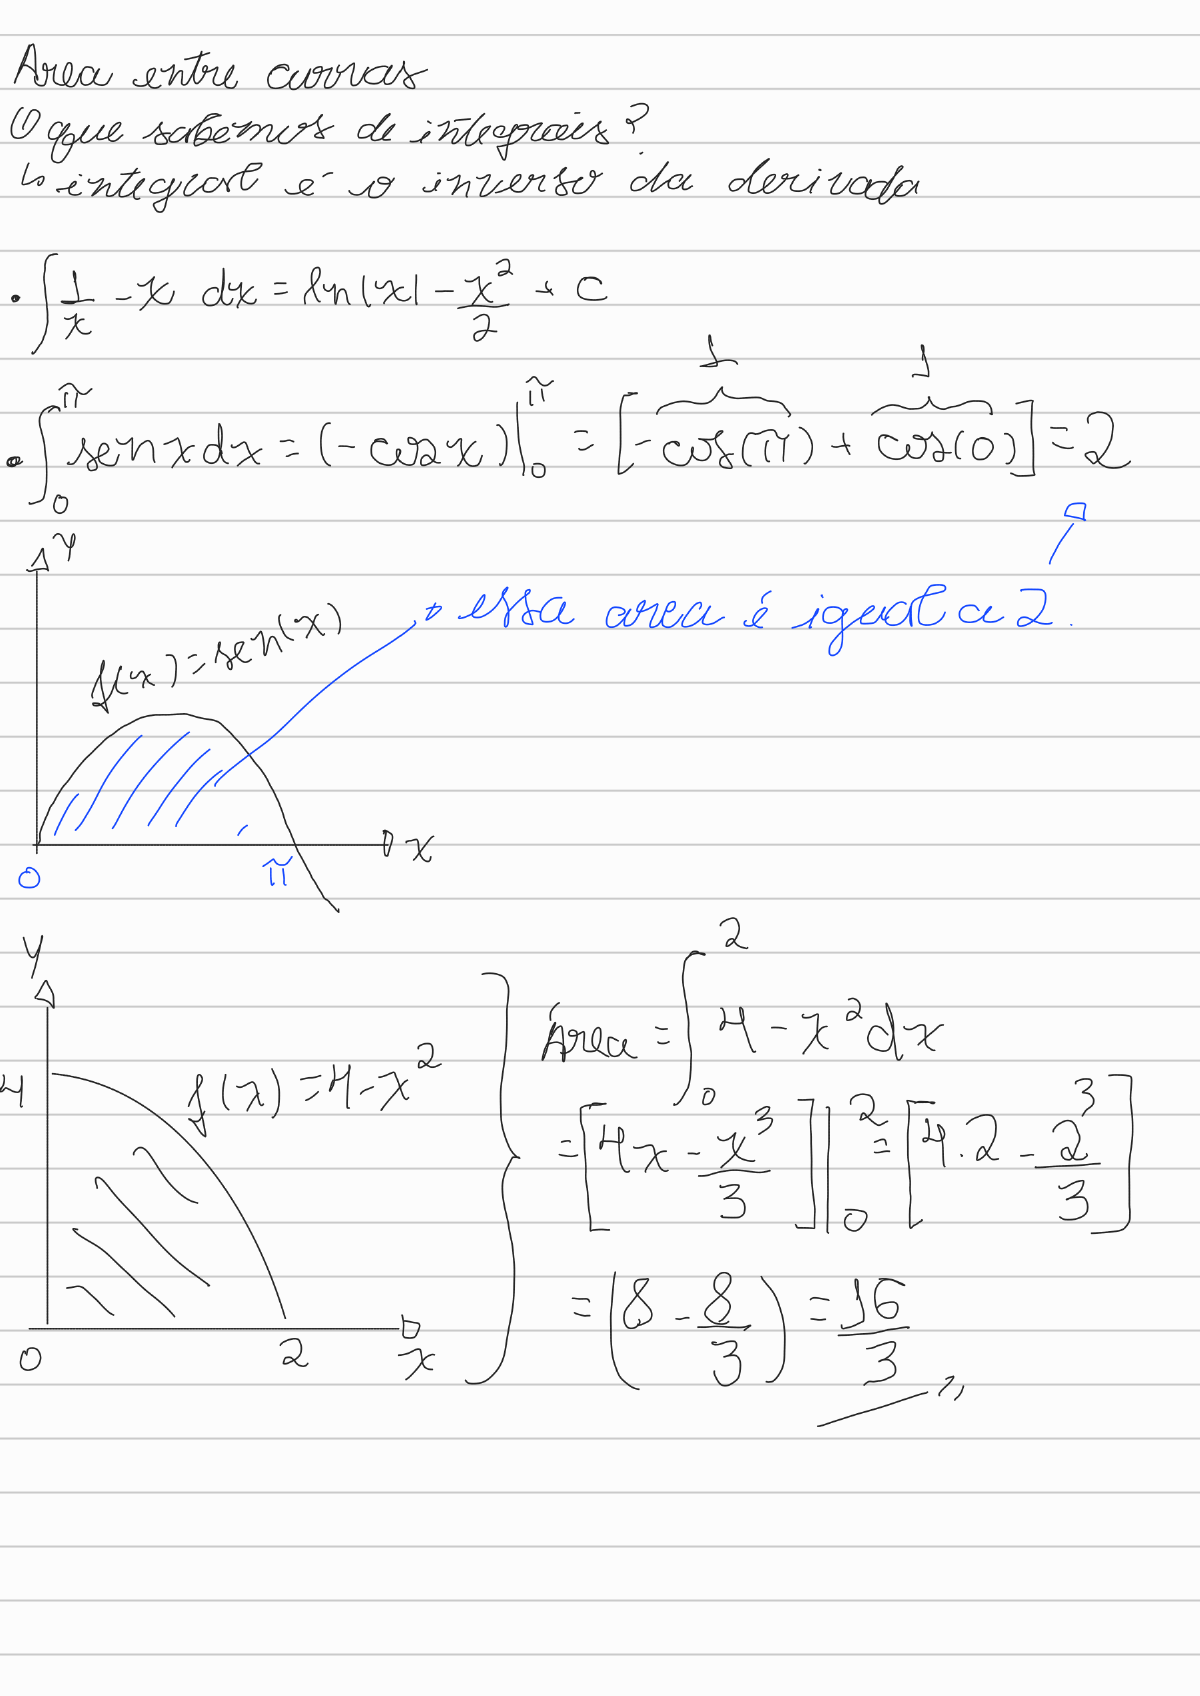 Area entre curvas
O que sabemos de integrais?
↳ integral é o inverso da derivada
• ∫ 1/x - x dx = ln|x| - x²/2 + C
1 1
• ∫₀^π sen x dx = (-cos x)|₀^π = [-cos(π) + cos(0)] = 2
y
f(x) = sen(x)
→ essa area é igual a 2.
x
0 π
y
4
f(x) = 4 - x²
0 2 x
Área = ∫₀² 4 - x² dx
= [4x - x³/3]|₀² = [4.2 - 2³/3]
= (8 - 8/3) = 16/3 //